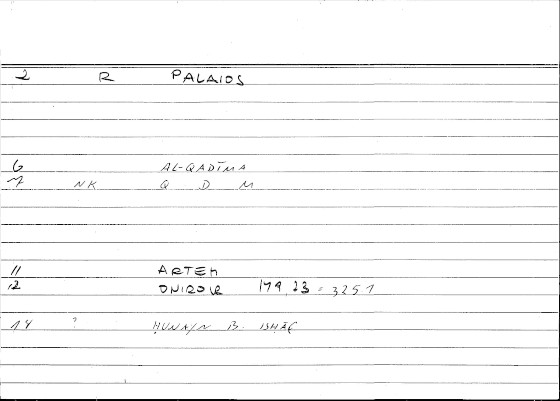 2 R PALAIOS
6 AL-QADĪMA
7 NK Q D M
11 ARTEM
12 ONIROKR 179,23 = 3251
14 ? ḤUNAIN B. ISḤĀQ